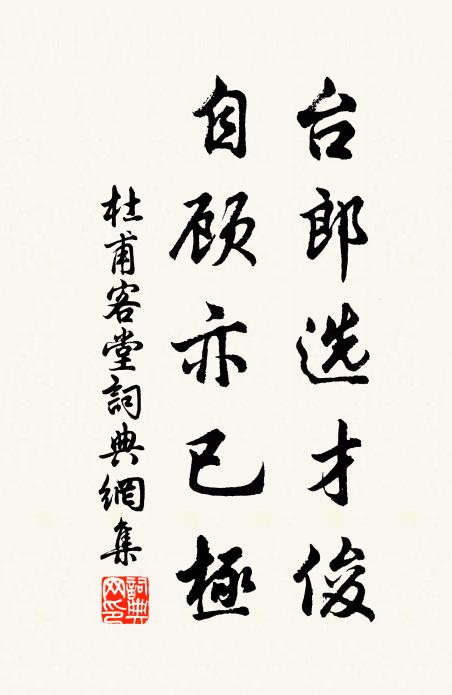 台郎选才俊
自顾亦已極
杜甫客堂詞典網集
詞典网印